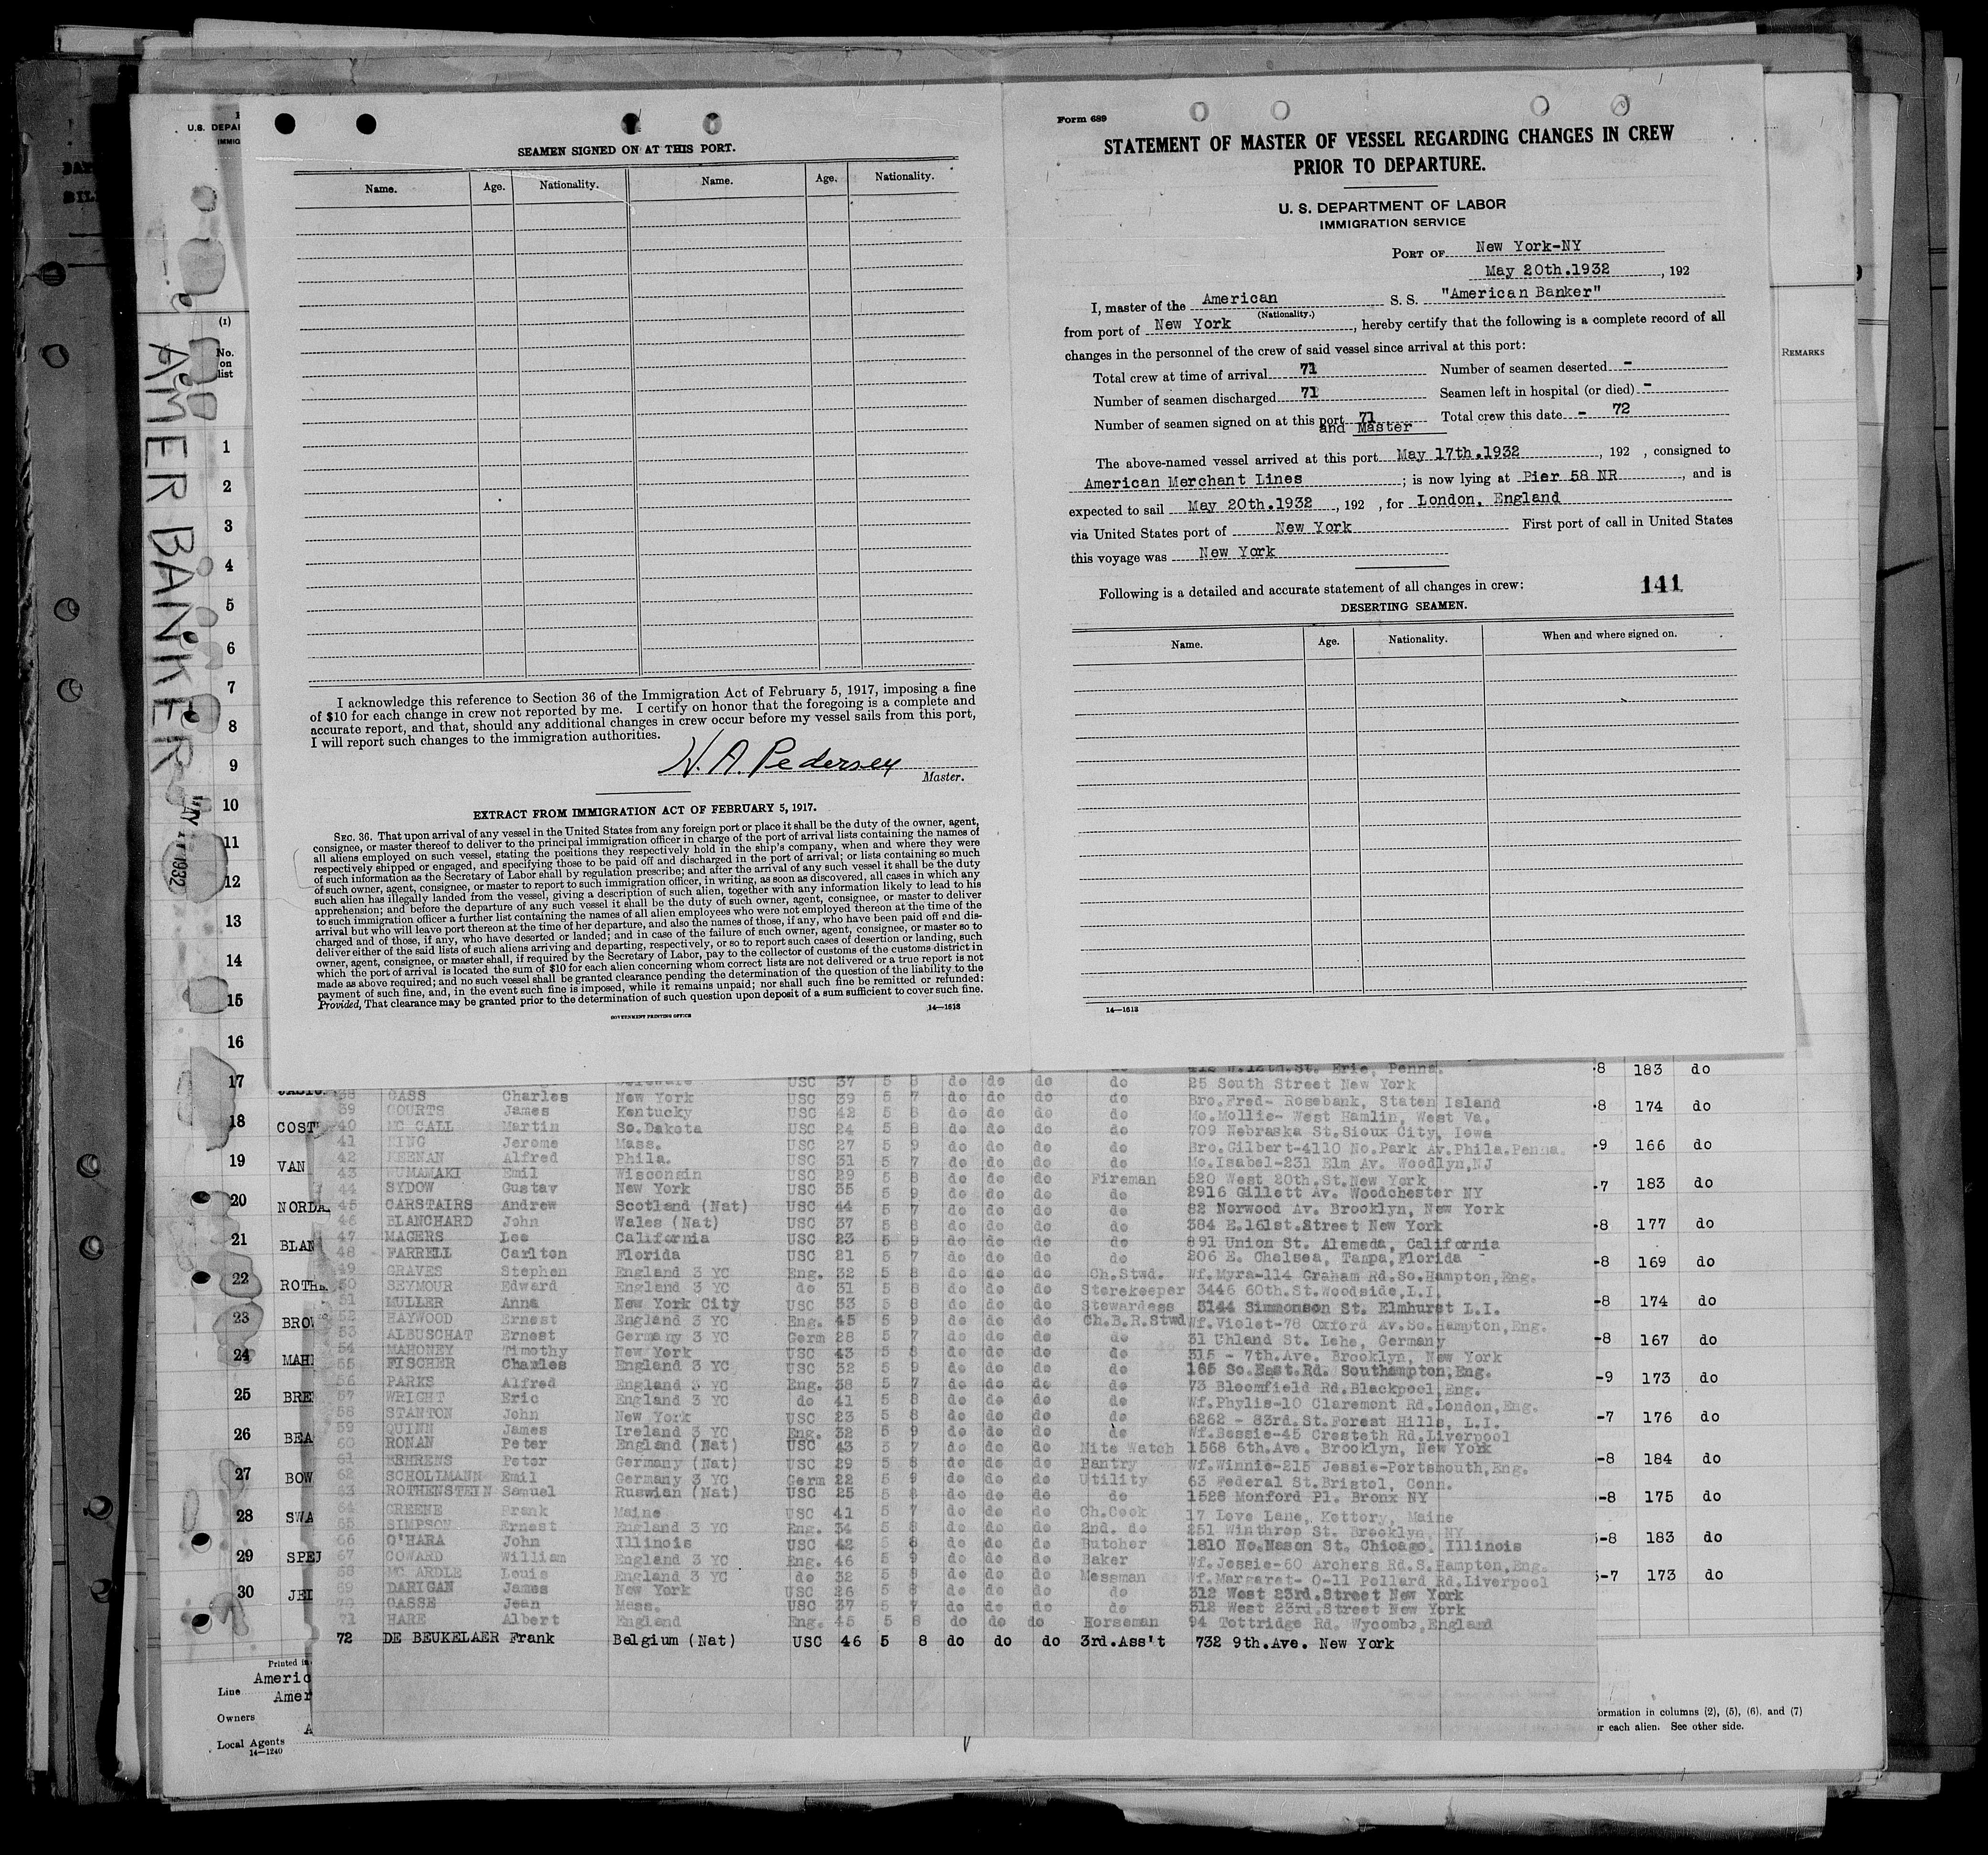 SEAMEN SIGNED ON AT THIS PORT.
Name. Age. Nationality. Name. Age. Nationality.
I acknowledge this reference to Section 36 of the Immigration Act of February 5, 1917, imposing a fine
of $10 for each change in crew not reported by me. I certify on honor that the foregoing is a complete and
accurate report, and that, should any additional changes in crew occur before my vessel sails from this port,
I will report such changes to the immigration authorities.
H. A. Pedersen
Master.
EXTRACT FROM IMMIGRATION ACT OF FEBRUARY 5, 1917.
SEC. 36. That upon arrival of any vessel in the United States from any foreign port or place it shall be the duty of the owner, agent,
consignee, or master thereof to deliver to the principal immigration officer in charge of the port of arrival lists containing the names of
all aliens employed on such vessel, stating the positions they respectively hold in the ship's company, when and where they were
respectively shipped or engaged, and specifying those to be paid off and discharged in the port of arrival; or lists containing so much
of such information as the Secretary of Labor shall by regulation prescribe; and after the arrival of any such vessel it shall be the duty
of such owner, agent, consignee, or master to report to such immigration officer, in writing, as soon as discovered, all cases in which any
such alien has illegally landed from the vessel, giving a description of such alien, together with any information likely to lead to his
apprehension; and before the departure of any such vessel it shall be the duty of such owner, agent, consignee, or master to deliver
to such immigration officer a further list containing the names of all alien employees who were not employed thereon at the time of the
arrival but who will leave port thereon at the time of her departure, and also the names of those, if any, who have been paid off and dis-
charged and of those, if any, who have deserted or landed; and in case of the failure of such owner, agent, consignee, or master so to
deliver either of the said lists of such aliens arriving and departing, respectively, or so to report such cases of desertion or landing, such
owner, agent, consignee, or master shall, if required by the Secretary of Labor, pay to the collector of customs of the customs district in
which the port of arrival is located the sum of $10 for each alien concerning whom correct lists are not delivered or a true report is not
made as above required; and no such vessel shall be granted clearance pending the determination of the question of the liability to the
payment of such fine, and, in the event such fine is imposed, while it remains unpaid; nor shall such fine be remitted or refunded:
Provided, That clearance may be granted prior to the determination of such question upon deposit of a sum sufficient to cover such fine.
GOVERNMENT PRINTING OFFICE 14—1613
Form 689
STATEMENT OF MASTER OF VESSEL REGARDING CHANGES IN CREW
PRIOR TO DEPARTURE.
U. S. DEPARTMENT OF LABOR
IMMIGRATION SERVICE
PORT OF New York-NY
May 20th.1932, 192
I, master of the American S. S. "American Banker"
(Nationality.)
from port of New York, hereby certify that the following is a complete record of all
changes in the personnel of the crew of said vessel since arrival at this port:
Total crew at time of arrival 71 Number of seamen deserted -
Number of seamen discharged 71 Seamen left in hospital (or died) -
Number of seamen signed on at this port 71 Total crew this date - 72
and Master
The above-named vessel arrived at this port May 17th.1932, 192 , consigned to
American Merchant Lines; is now lying at Pier 58 NR, and is
expected to sail May 20th.1932, 192 , for London, England
via United States port of New York First port of call in United States
this voyage was New York
Following is a detailed and accurate statement of all changes in crew: 141
DESERTING SEAMEN.
Name. Age. Nationality. When and where signed on.
14—1613
REMARKS
AMER BANKER
1932
(1)
No.
on
list
1
2
3
4
5
6
7
8
9
10
11
12
13
14
15
16
17
18 COST
19 VAN
20 NORDA
21 BLAN
22 ROTH
23 BROW
24 MAH
25 BRE
26 BEA
27 BOW
28 SWA
29 SPE
30 JEL
412 W.12th.St. Erie, Penna.
USC 37 5 8 do do do do 25 South Street New York
38 GASS Charles New York USC 39 5 7 do do do do Bro.Fred- Rosebank, Staten Island
39 COURTS James Kentucky USC 42 5 8 do do do do Mo.Mollie- West Hamlin, West Va.
40 MC CALL Martin So.Dakota USC 24 5 8 do do do do 709 Nebraska St.Sioux City, Iowa
41 KING Jerome Mass. USC 27 5 9 do do do do Bro.Gilbert-4110 No.Park Av.Phila.Penna.
42 KEENAN Alfred Phila. USC 31 5 7 do do do do Mo.Isabel-231 Elm Av. Woodlyn,NJ
43 WUMAMAKI Emil Wisconsin USC 29 5 8 do do do Fireman 520 West 20th.St.New York
44 SYDOW Gustav New York USC 35 5 9 do do do do 2916 Gillett Av. Woodchester NY
45 CARSTAIRS Andrew Scotland (Nat) USC 44 5 7 do do do do 82 Norwood Av. Brooklyn, New York
46 BLANCHARD John Wales (Nat) USC 37 5 8 do do do do 384 E.161st.Street New York
47 MAGERS Lee California USC 23 5 9 do do do do 891 Union St. Alameda, California
48 FARRELL Carlton Florida USC 21 5 7 do do do do 206 E. Chelsea, Tampa,Florida
49 GRAVES Stephen England 3 YC Eng. 32 5 8 do do do Ch.Stwd. Wf.Myra-114 Graham Rd.So.Hampton,Eng.
50 SEYMOUR Edward England 3 YC do 31 5 8 do do do Storekeeper 3446 60th.St.Woodside,L.I.
51 MULLER Anna New York City USC 53 5 8 do do do Stewardess 5144 Simmonson St. Elmhurst L.I.
52 HAYWOOD Ernest England 3 YC Eng. 45 5 9 do do do Ch.B.R.Stwd Wf.Violet-78 Oxford Av.So.Hampton,Eng.
53 ALBUSCHAT Ernest Germany 3 YC Germ 28 5 7 do do do do 31 Uhland St. Lehe, Germany
54 MAHONEY Timothy New York USC 43 5 8 do do do do 315 - 7th.Ave. Brooklyn, New York
55 FISCHER Charles England 3 YC USC 32 5 9 do do do do 165 So.East.Rd. Southampton,Eng.
56 PARKS Alfred England 3 YC Eng. 38 5 7 do do do do 73 Bloomfield Rd.Blackpool,Eng.
57 WRIGHT Eric England 3 YC do 41 5 8 do do do do Wf.Phylis-10 Claremont Rd.London,Eng.
58 STANTON John New York USC 23 5 8 do do do do 6262 - 83rd.St.Forest Hills, L.I.
59 QUINN James Ireland 3 YC Eng. 32 5 9 do do do do Wf.Bessie-45 Cresteth Rd.Liverpool
60 RONAN Peter England (Nat) USC 43 5 7 do do do Nite Watch 1568 6th.Ave. Brooklyn, New York
61 BEHRENS Peter Germany (Nat) USC 29 5 8 do do do Pantry Wf.Winnie-215 Jessie-Portsmouth,Eng.
62 SCHOLLMANN Emil Germany 3 YC Germ 22 5 9 do do do Utility 63 Federal St.Bristol, Conn.
63 ROTHENSTEIN Samuel Ruswian (Nat) USC 25 5 8 do do do do 1528 Monford Pl. Bronx NY
64 GREENE Frank Maine USC 41 5 7 do do do Ch.Cook 17 Love Lane, Kettory, Maine
65 SIMPSON Ernest England 3 YC Eng. 34 5 8 do do do 2nd. do 251 Winthrop St. Brooklyn, NY
66 O'HARA John Illinois USC 42 5 8 do do do Butcher 1810 No.Mason St. Chicago, Illinois
67 COWARD William England 3 YC Eng. 46 5 9 do do do Baker Wf.Jessie-60 Archers Rd.S.Hampton,Eng.
68 MC ARDLE Louis England 3 YC do 32 5 8 do do do Messman Wf.Margaret- 0-11 Pollard Rd.Liverpool
69 DARIGAN James New York USC 26 5 8 do do do do 312 West 23rd.Street New York
70 GASSE Jean Mass. USC 37 5 7 do do do do 312 West 23rd.Street New York
71 HARE Albert England Eng. 45 5 8 do do do Horseman 94 Tottridge Rd. Wycombe,England
72 DE BEUKELAER Frank Belgium (Nat) USC 46 5 8 do do do 3rd.Ass't 732 9th.Ave. New York
-8 183 do
-8 174 do
-9 166 do
-7 183 do
-8 177 do
-8 169 do
-8 174 do
-8 167 do
-9 173 do
-7 176 do
-8 184 do
-8 175 do
-8 183 do
-7 173 do
Printed in
Line Americ
Amer
Owners
Local Agents
14—1240
ormation in columns (2), (5), (6), and (7)
r each alien. See other side.